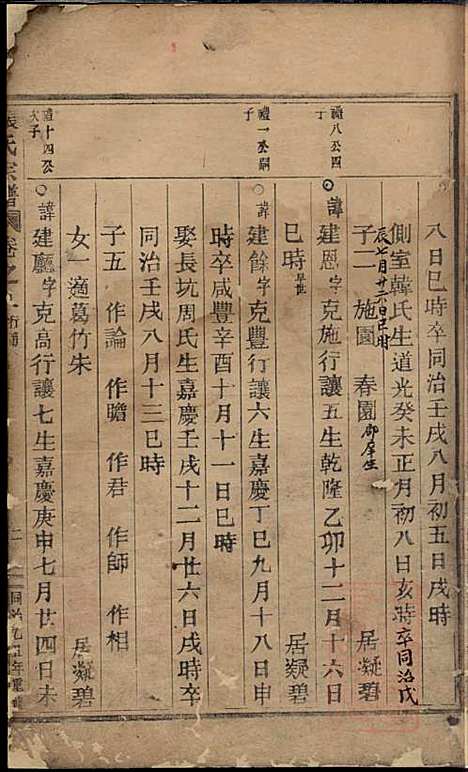 八日巳時卒同治壬戌八月初五日戌時
側室韓氏生道光癸未正月初八日亥時卒同治戊
辰七月廿六日巳時
子二 施園 春園 郡庠生 居凝碧
禮八公四
子
諱建恩字克施行讓五生乾隆乙卯十二月十六日
巳時早世 居凝碧
禮一公嗣
子
諱建餘字克豐行讓六生嘉慶丁巳九月十八日申
時卒咸豐辛酉十月十一日巳時
娶長坑周氏生嘉慶壬戌十二月廿六日戌時卒
同治壬戌八月十三巳時
子五 作論 作瞻 作君 作師 作相
女一適葛竹朱 居凝碧
禮十四公
次子
諱建廳字克高行讓七生嘉慶庚申七月廿四日未
張氏宗譜
同治九年重